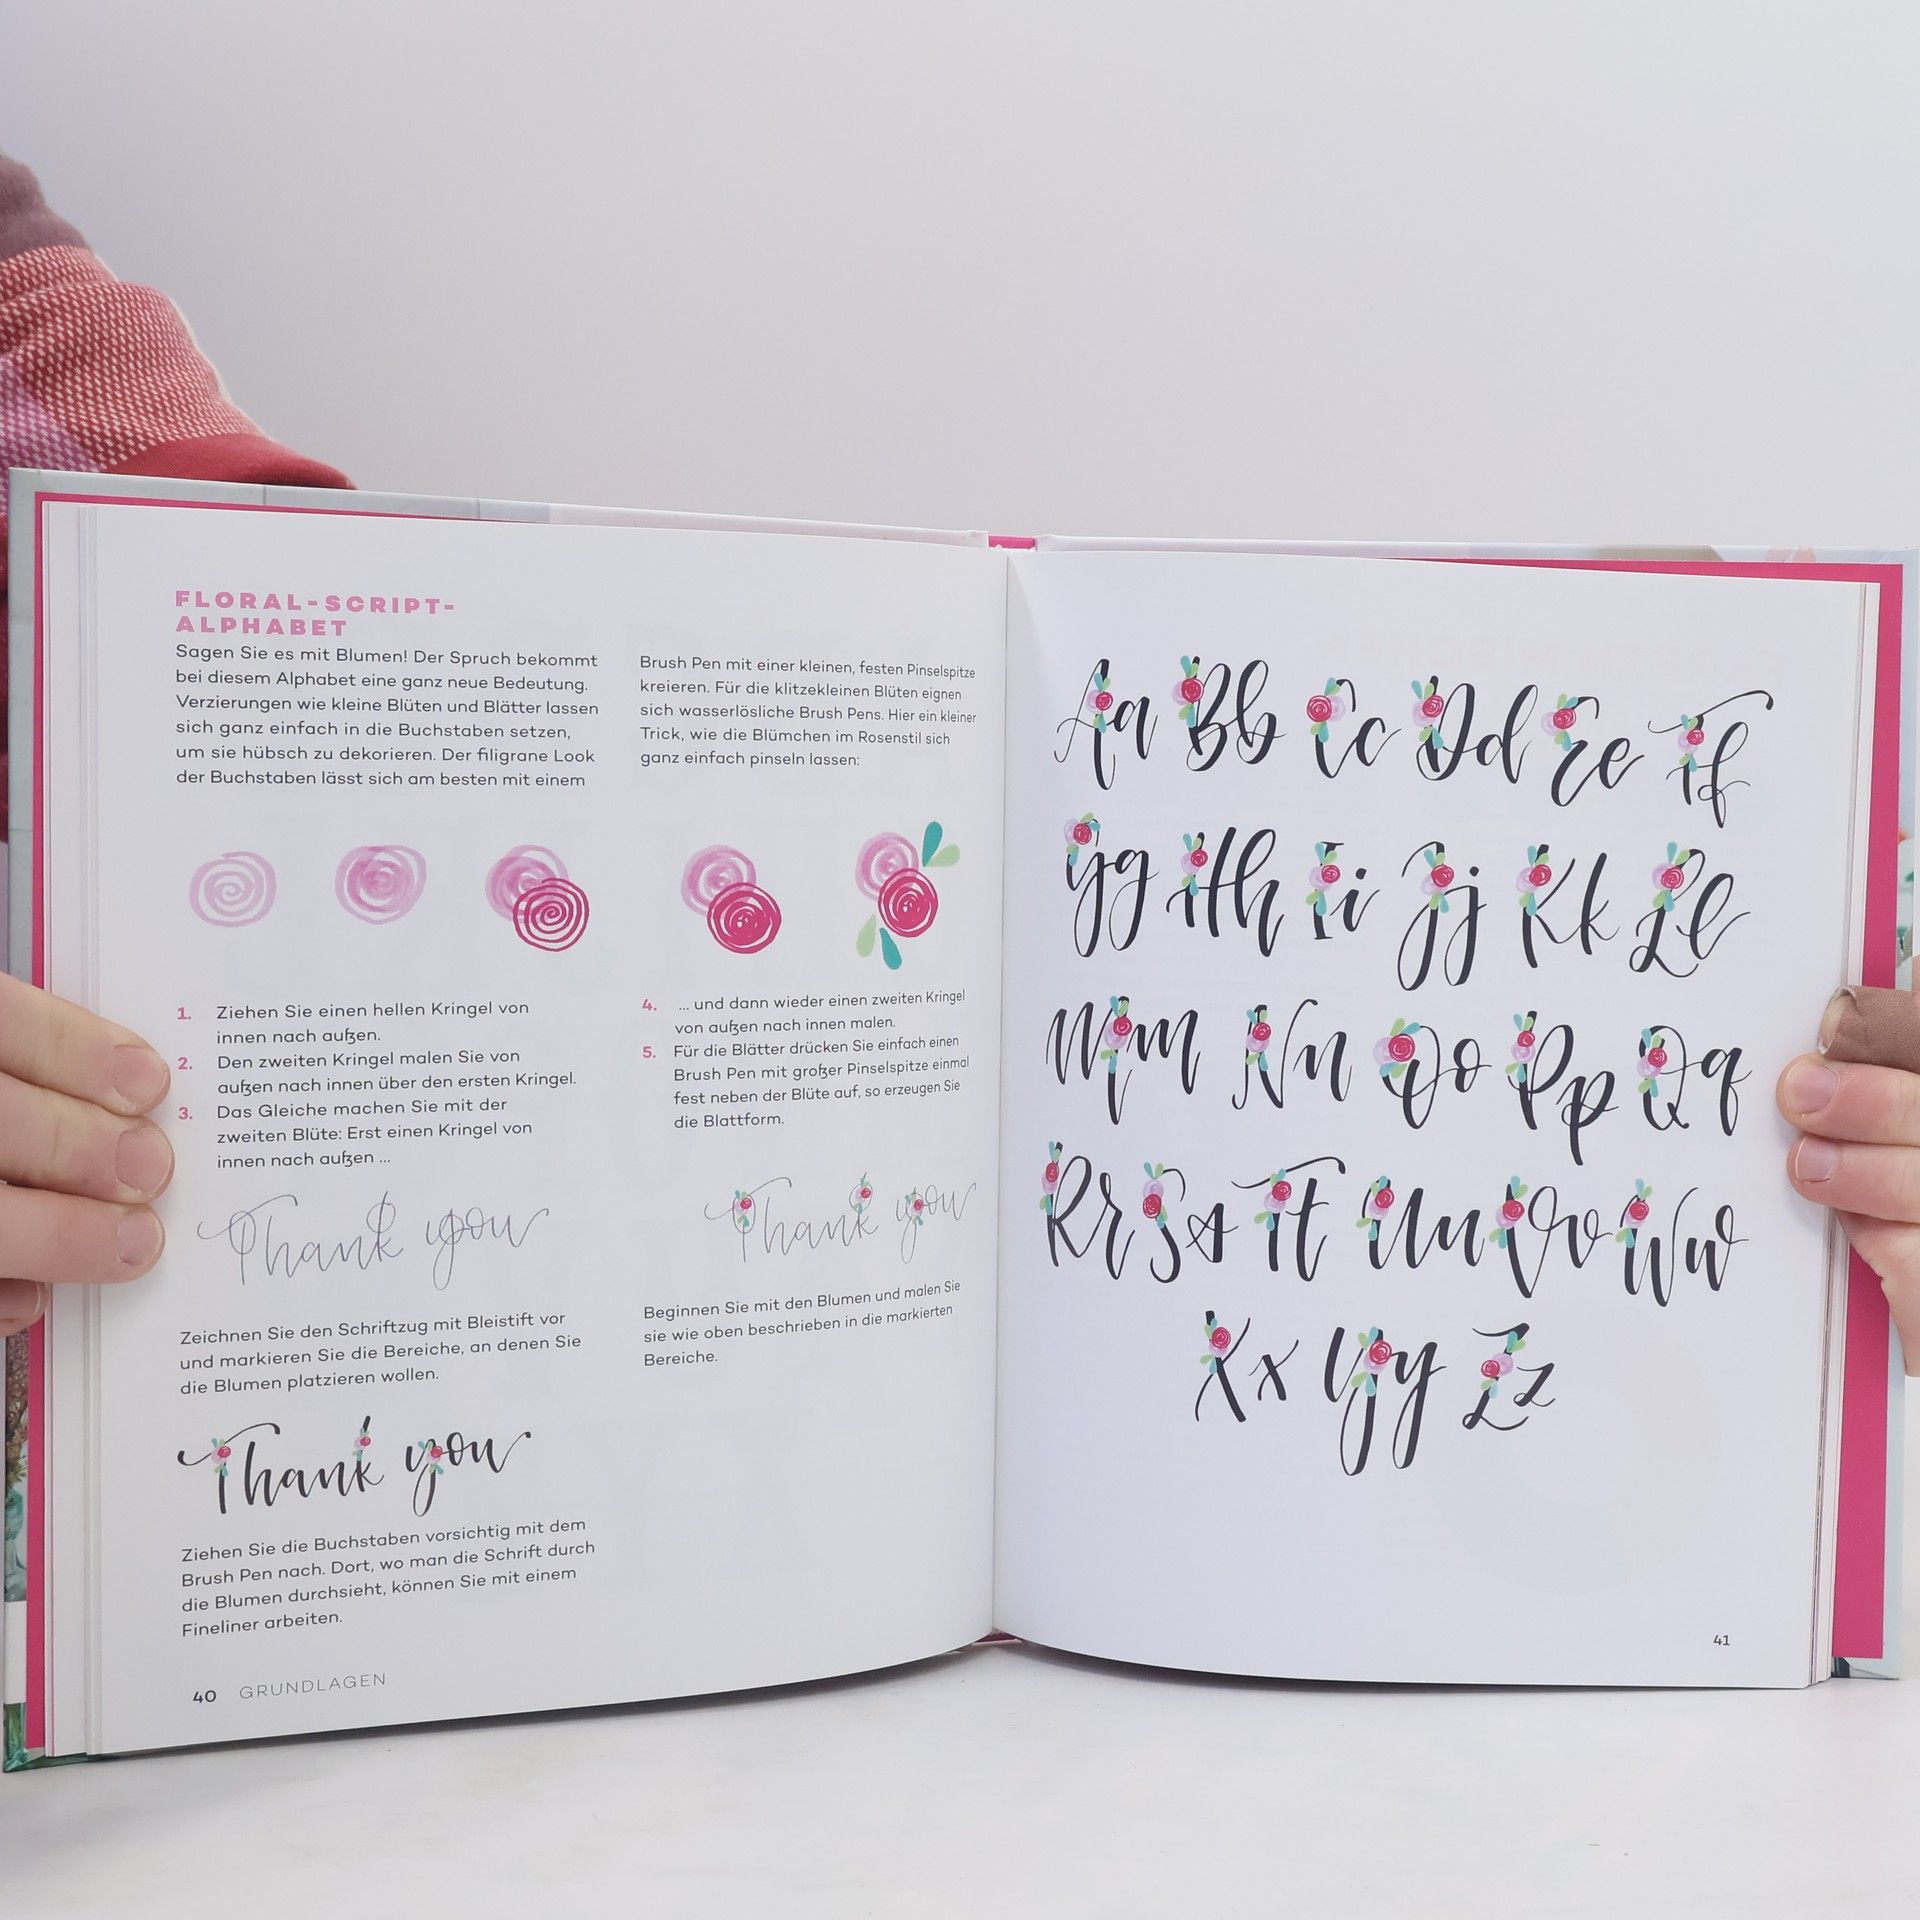 FLORAL-SCRIPT-
ALPHABET
Sagen Sie es mit Blumen! Der Spruch bekommt
bei diesem Alphabet eine ganz neue Bedeutung.
Verzierungen wie kleine Blüten und Blätter lassen
sich ganz einfach in die Buchstaben setzen,
um sie hübsch zu dekorieren. Der filigrane Look
der Buchstaben lässt sich am besten mit einem
Brush Pen mit einer kleinen, festen Pinselspitze
kreieren. Für die klitzekleinen Blüten eignen
sich wasserlösliche Brush Pens. Hier ein kleiner
Trick, wie die Blümchen im Rosenstil sich
ganz einfach pinseln lassen:
1. Ziehen Sie einen hellen Kringel von
innen nach außen.
2. Den zweiten Kringel malen Sie von
außen nach innen über den ersten Kringel.
3. Das Gleiche machen Sie mit der
zweiten Blüte: Erst einen Kringel von
innen nach außen ...
4. ... und dann wieder einen zweiten Kringel
von außen nach innen malen.
5. Für die Blätter drücken Sie einfach einen
Brush Pen mit großer Pinselspitze einmal
fest neben der Blüte auf, so erzeugen Sie
die Blattform.
Thank you
Zeichnen Sie den Schriftzug mit Bleistift vor
und markieren Sie die Bereiche, an denen Sie
die Blumen platzieren wollen.
Thank you
Beginnen Sie mit den Blumen und malen Sie
sie wie oben beschrieben in die markierten
Bereiche.
Thank you
Ziehen Sie die Buchstaben vorsichtig mit dem
Brush Pen nach. Dort, wo man die Schrift durch
die Blumen durchsieht, können Sie mit einem
Fineliner arbeiten.
40 GRUNDLAGEN
Aa Bb Cc Dd Ee Ff
Gg Hh Ii Jj Kk Ll
Mm Nn Oo Pp Qq
Rr Ss Tt Uu Vv Ww
Xx Yy Zz
41